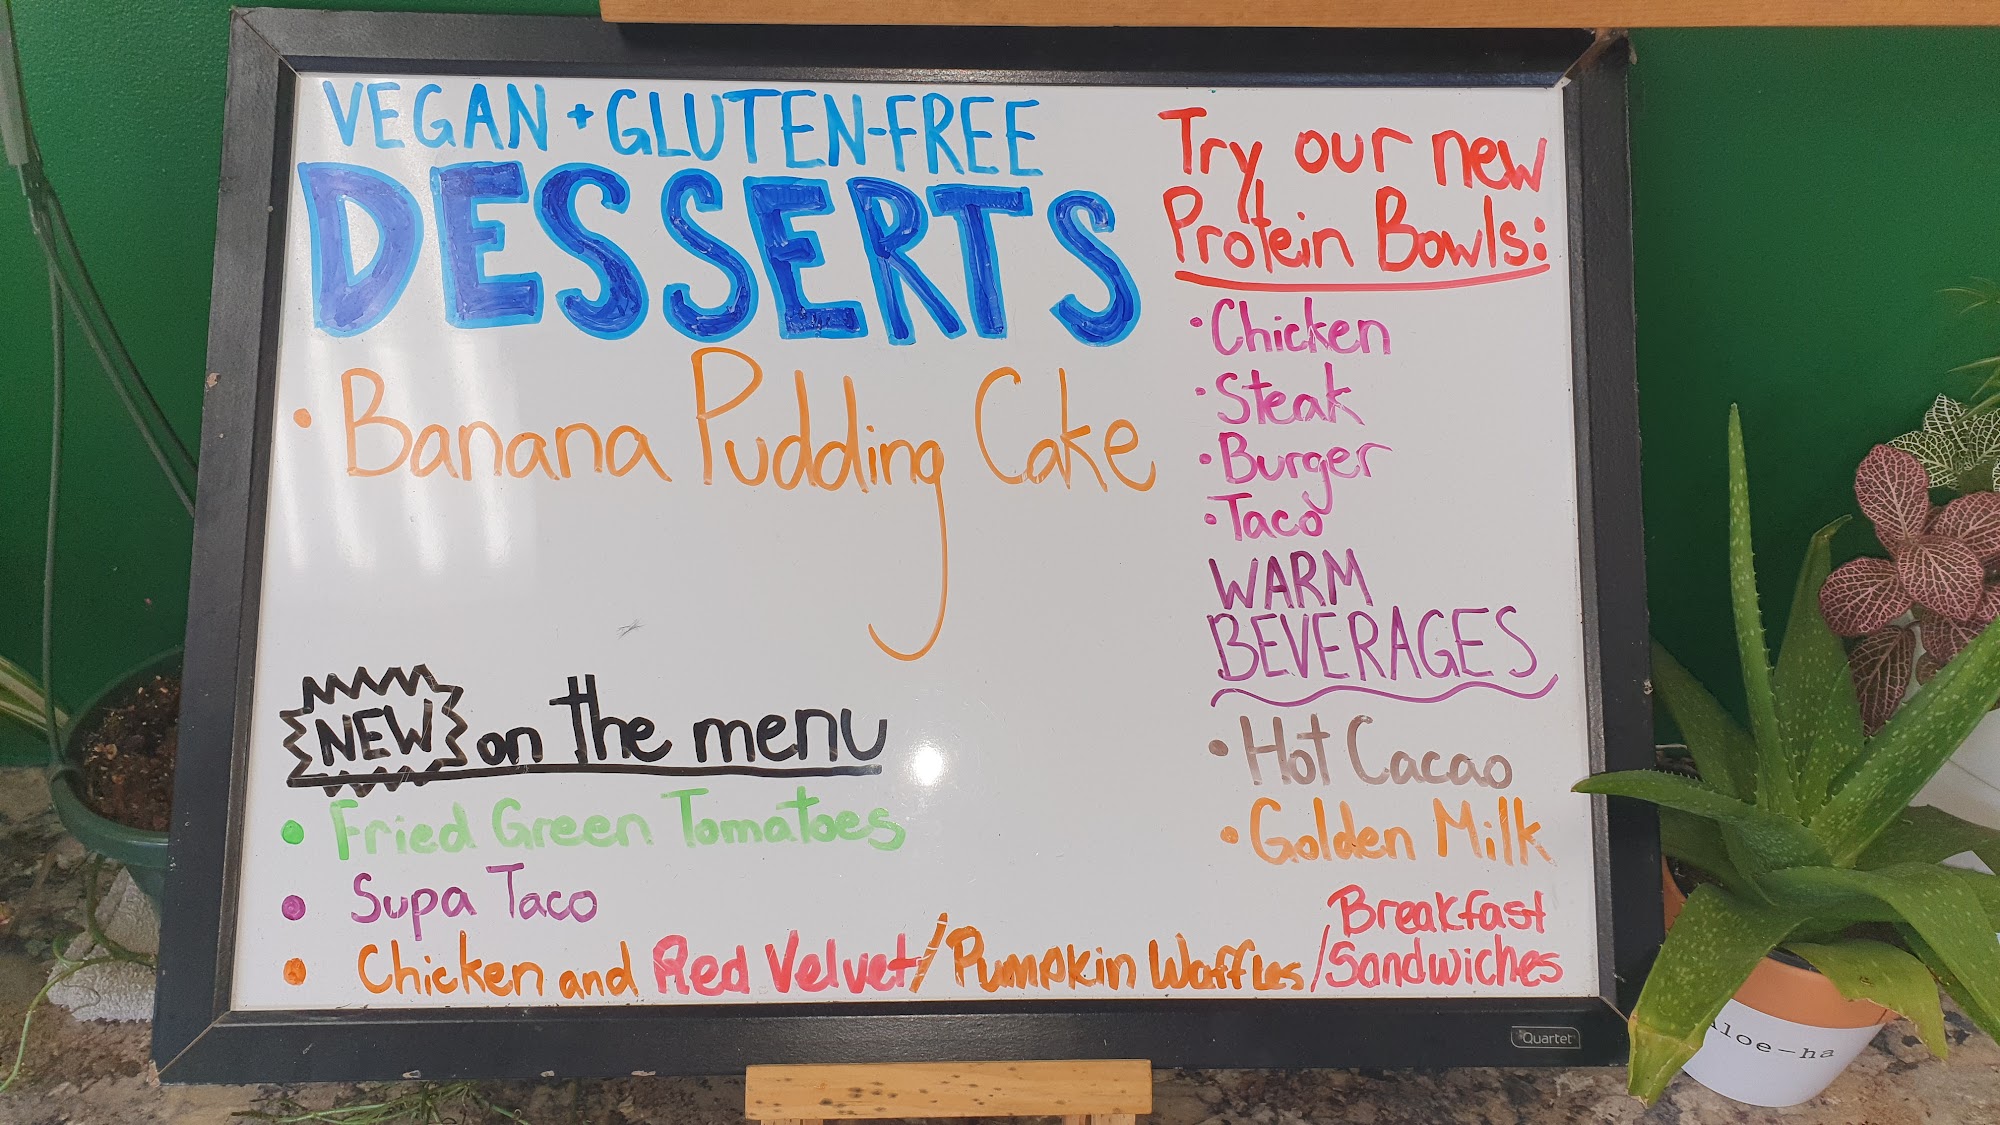 VEGAN + GLUTEN-FREE
DESSERTS
• Banana Pudding Cake
NEW on the menu
• Fried Green Tomatoes
• Supa Taco
• Chicken and Red Velvet/Pumpkin Waffles/Breakfast Sandwiches
Try our new
Protein Bowls:
• Chicken
• Steak
• Burger
• Taco
WARM
BEVERAGES
• Hot Cacao
• Golden Milk
Quartet
Aloe-ha